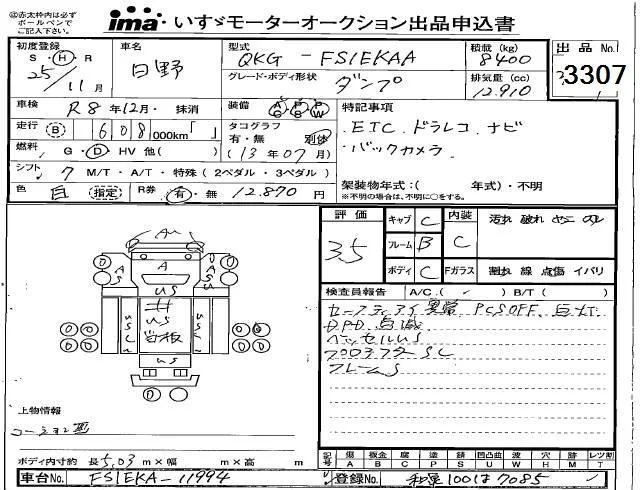 ◎赤太枠内は必ず
ボールペンで
ご記入下さい。
ima いすゞモーターオークション出品申込書
初度登録 車名 型式 積載(kg) 出品No.
S・H・R 日野 QKG - FS1EKAA 8400 3307
25/11月 グレード・ボディ形状 ダンプ 排気量(cc) 12.910
車検 R8年12月・抹消 装備 AC PS PW 特記事項
走行 B 608,000km「 」 タコグラフ 有・無 別体 .ETC.ドラレコ.ナビ
燃料 G・D・HV 他( ) (13年07月) .バックカメラ.
シフト 7 M/T・A/T・特殊(2ペダル・3ペダル)
架装物年式:( 年式)・不明
※不明の場合は、不明に○をする。
色 白 (指定) R券 有・無 12.870円
評価 キャブ C 内装 汚れ 破れ ヤニ
3.5 フレーム B C
ボディ C Fガラス 割れ 線 点傷 イバリ
検査員報告 A/C.( ✓ ) B/T( )
セーフティアイ異常 PCSOFF、
DPD点滅
ベッセルUS
フロアSC
フレームS
上物情報
コーションⅢ
ボディ内寸約 長5.03m×幅 m×高 m
記号 傷 板金 腐 塗 錆 凹凸曲 波 穴 目 レツ割
A B C P S U W H M T
車台No. FS1EKA-11994
登録No. 和泉100は7085